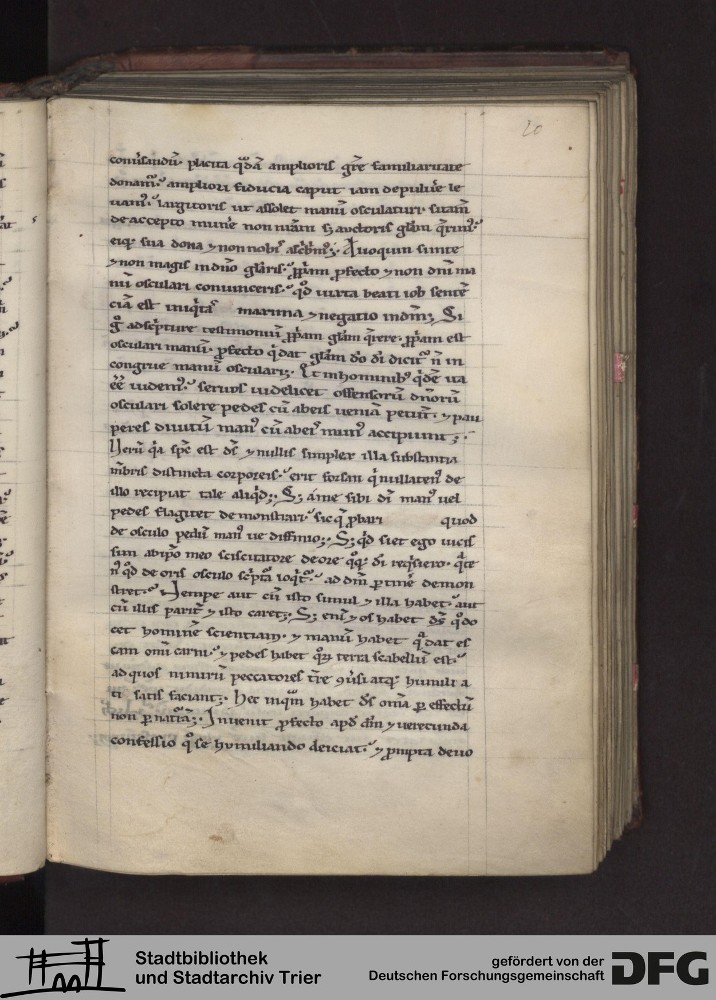 20
conv̄sandū. placita q̄dā amplioris gr̄e familiaritate
donam᷒. ampliori fiducia caput iam depulūe le
uam᷒. largitoris ut assolet manū osculaturi. si tam̄
de accepto mun̄e non nr̄am s; auctoris gl̄am q̄rim᷒.
eiq; sua dona ⁊ non nobis ascbim᷒. Alioquin si in te
⁊ non magis in dn̄o gl̄aris. ꝓpriam ꝓfecto ⁊ non dn̄i ma
nū osculari convinceris. qd̄ iuxta beati iob sentē
ciā est iniq̄tas maxima ⁊ negatio in dm̄; Si
g° adscpture testimoniū ꝓpriam gl̄am q̄rere. ꝓpriam est
osculari manū. ꝓfecto q̄ dat gl̄am dō dī dicit᷒ n̄ in
congrue manū oscularī. Et in hominib; q̄dē ita
eē uidem᷒. servos uidelicet offensorū dn̄orū
osculari solere pedes cū ab eis veniā petūt. ⁊ pau
peres diuitū man᷒ cū ab eis mun᷒ accipiunt;
Verū q̄a spc est ds̄ ⁊ nullis simplex illa substantia
mb̄ris distincta corporeis. erit forsan q̄ nullaten᷒ de
illo recipiat tale aliq̄d; S; a me sibi dī man᷒ vel
pedes flagitet demonstrari. sicq; ꝓbari quod
de osculo pedū man᷒ ve diffinio; S; qd̄ si et ego vicis
sim ab ipō meo sciscitatore de ore q̄q; dī req̄siero.
n᷒ qd̄ de oris osculo sc̄ptā loq̄t᷒. ad dm̄ ꝑtinē demon
stret. Nempe aut cū isto simul ⁊ illa habet. aut
cū illis parit᷒ ⁊ isto caret; S; eni ⁊ os habet ds̄ q° do
cet hominē scientiam. ⁊ manū habet q̄ dat es
cam omi carni. ⁊ pedes habet quor; terra scabellū est.
ad quos nimirū peccatores tr̄e 9v̄si atq; humili a
ti satis faciant; Hec inquam habet ds̄ omīa ꝑ effectū
non ꝑ natr̄am; Invenit ꝓfecto apd̄ dm̄ ⁊ verecunda
confessio q° se humiliando deiciat. ⁊ ꝓmpta devo
Stadtbibliothek
und Stadtarchiv Trier
gefördert von der
Deutschen Forschungsgemeinschaft
DFG